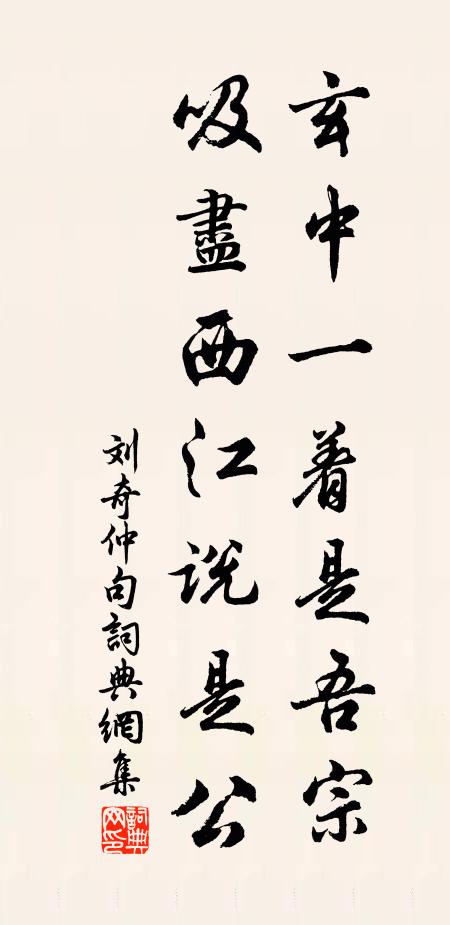 玄中一着是吾宗
吸盡西江説是公
刘奇仲句詞典網集
詞典网印